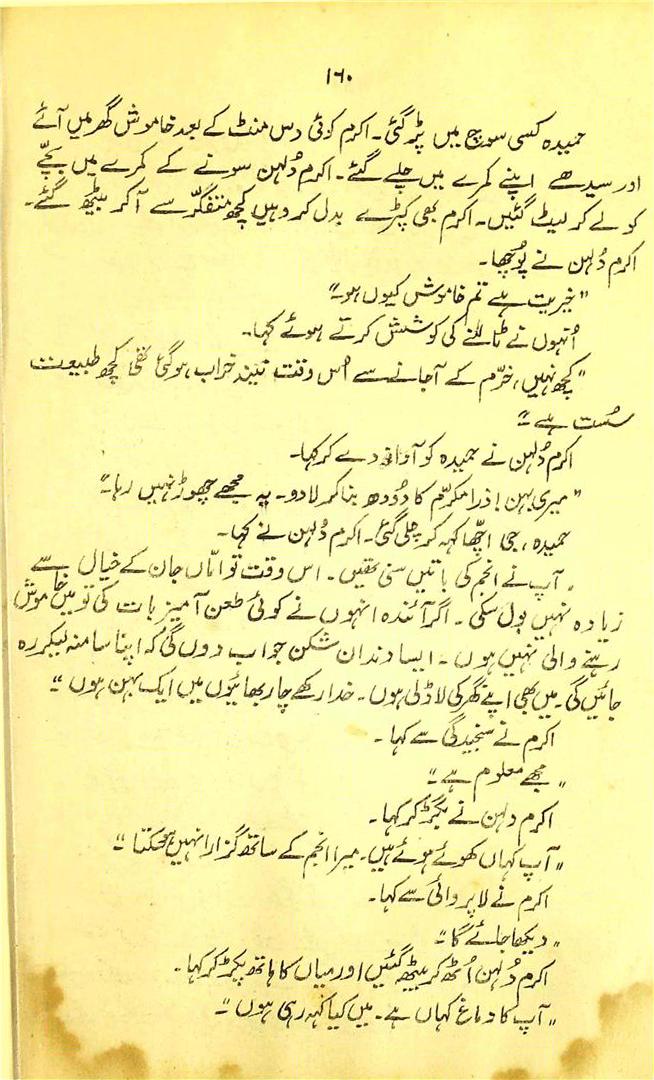 ۱۶۰
حمیدہ کسی سوچ میں پڑ گئی۔ اکرم کوئی دس منٹ کے بعد خاموش گھر میں آئے
اور سیدھے اپنے کمرے میں چلے گئے۔ اکرم دُلہن سونے کے کمرے میں بچّے
کو لے کر لیٹ گئیں۔ اکرم بھی کپڑے بدل کر وہیں کچھ متفکّر سے آ کر بیٹھ گئے۔
اکرم دُلہن نے پُوچھا۔
"خیریت ہے تم خاموش کیوں ہو۔"
اُنہوں نے ٹالنے کی کوشش کرتے ہوئے کہا۔
"کچھ نہیں، خرّم کے آجانے سے اُس وقت نیند خراب ہو گئی تھی کچھ طبیعت
سُست ہے۔"
اکرم دُلہن نے حمیدہ کو آواز دے کر کہا۔
"میری بہن! ذرا مکرّم کا دُودھ بنا کر لا دو۔ یہ مجھے چھوڑ نہیں رہا۔"
حمیدہ، جی اچّھا کہہ کر چلی گئی۔ اکرم دُلہن نے کہا۔
"آپ نے انجم کی باتیں سنی تھیں۔ اس وقت تو امّاں جان کے خیال سے
زیادہ نہیں بول سکی۔ اگر آئندہ انہوں نے کوئی طعن آمیز بات کی تو میں خاموش
رہنے والی نہیں ہوں۔ ایسا دندان شکن جواب دوں گی کہ اپنا سا منہ لیکر رہ
جائیں گی۔ میں بھی اپنے گھر کی لاڈلی ہوں۔ خدا رکھے چار بھائیوں میں ایک بہن ہوں۔"
اکرم نے سنجیدگی سے کہا۔
"مجھے معلوم ہے۔"
اکرم دلہن نے بگڑ کر کہا۔
"آپ کہاں کھوئے ہوئے ہیں۔ میرا انجم کے ساتھ گزارا نہیں ہو سکتا۔"
اکرم نے لاپروائی سے کہا۔
"دیکھا جائے گا۔"
اکرم دُلہن اُٹھ کر بیٹھ گئیں اور میاں کا ہاتھ پکڑ کر کہا۔
"آپ کا دماغ کہاں ہے۔ میں کیا کہہ رہی ہوں۔"